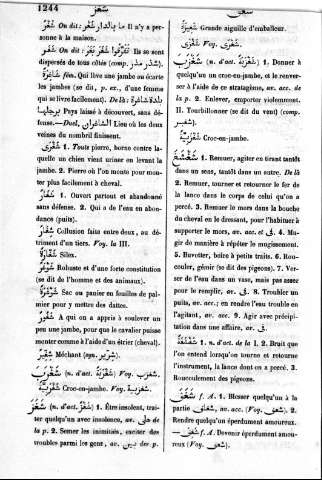 1244 شغز
شغف
شُغُورٌ On dit : مَا بِالدَّارِ شُغُورٌ Il n'y a per-
sonne à la maison.
شَغَرَ On dit : تَفَرَّقُوا شَغَرَ بَغَرَ Ils se sont
dispersés de tous côtés (comp. شذر مذر).
شَاغِرَةٌ fém. Qui lève une jambe ou écarte
les jambes (se dit, p. ex., d'une femme
qui se livre facilement). De là : بلدة شاغرة
برجلها Pays laissé à découvert, sans dé-
fense.—Duel, الشاغران Lieu où les deux
veines du nombril finissent.
شَغْرَى 1. Toute pierre, borne contre la-
quelle un chien vient uriner en levant la
jambe. 2. Pierre où l'on monte pour mon-
ter plus facilement à cheval.
1. Ouvert partout et abandonné
sans défense. 2. Qui a de l'eau en abon-
dance (puits).
شِغَارٌ Collusion faite entre deux, au dé-
triment d'un tiers. Voy. la III.
Silex.
Robuste et d'une forte constitution
(se dit de l'homme et des animaux).
Sac ou panier en feuilles de pal-
mier pour y mettre des dattes.
A qui on a appris à soulever un
peu une jambe, pour que le cavalier puisse
monter comme à l'aide d'un étrier (cheval).
شِغِّيرٌ Méchant (syn. شرير).
(n. d'act. ) Voy. شغزب.
Croc-en-jambe. Voy. شغزبية.
شَغَزَ (n. d'act. شَغْزٌ) 1. Être insolent, trai-
ter quelqu'un avec insolence, av. على de
la p. 2. Semer les inimitiés, exciter des
troubles parmi les gens, av. بين der p.
شَغِيزَةٌ Grande aiguille d'emballeur.
Voy. شغرى.
شَغْزَبَ (n. d'act. شَغْزَبَةٌ) 1. Donner à
quelqu'un un croc-en-jambe, et le renver-
ser à l'aide de ce stratagème, av. acc. de
la p. 2. Enlever, emporter violemment.
II. Tourbillonner (se dit du vent) (comp.
).
شَغْزَبِيَّةٌ Croc-en-jambe.
شَغْشَغَ 1. Remuer, agiter en tirant tantôt
dans un sens, tantôt dans un autre. De là
2. Remuer, tourner et retourner le fer de
la lance dans le corps de celui qu'on a
percé. 3. Remuer le mors dans la bouche
du cheval en le dressant, pour l'habituer à
supporter le mors, av. acc. et فى. 4. Mu-
gir de manière à répéter le mugissement.
5. Buvotter, boire à petits traits. 6. Rou-
couler, gémir (se dit des pigeons). 7. Ver-
ser de l'eau dans un vase, mais pas assez
pour le remplir, av. فى. 8. Troubler un
puits, av. acc.; en rendre l'eau trouble en
l'agitant, av. acc. 9. Agir avec précipi-
tation dans une affaire, av. فى.
شَغْشَغَةٌ 1. n. d'act. de la I, 2. Bruit que
l'on entend lorsqu'on tourne et retourne
l'instrument, la lance dont on a percé. 3.
Roucoulement des pigeons.
شَغَفَ f. A. 1. Blesser quelqu'un à la
partie شغاف, av. acc. (Voy. شغاف). 2.
Rendre quelqu'un éperdument amoureux.
— شَغِفَ f. A. Devenir éperdument amou-
reux (Voy. شغف).